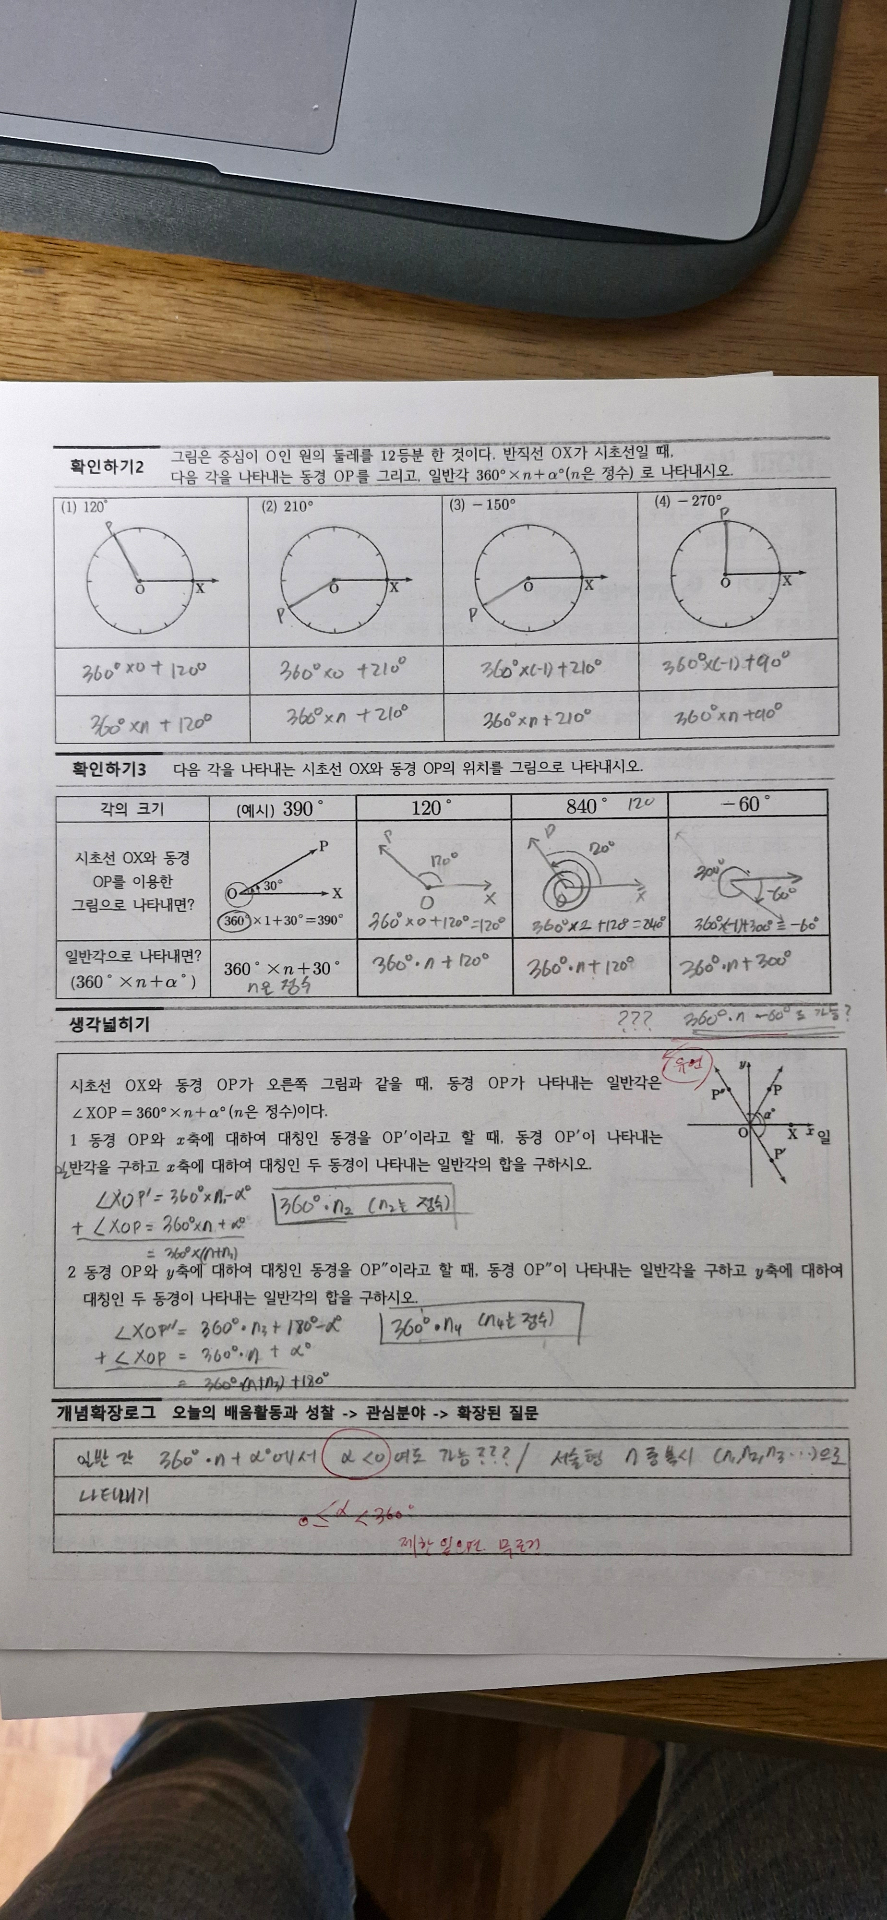 확인하기2 그림은 중심이 O인 원의 둘레를 12등분 한 것이다. 반직선 OX가 시초선일 때,
다음 각을 나타내는 동경 OP를 그리고, 일반각 360°×n+α°(n은 정수) 로 나타내시오.
(1) 120° (2) 210° (3) −150° (4) −270°
P O X P O X P O X P O X
360°×0+120° 360°×0+210° 360°×(-1)+210° 360°×(-1)+90°
360°×n+120° 360°×n+210° 360°×n+210° 360°×n+90°
확인하기3 다음 각을 나타내는 시초선 OX와 동경 OP의 위치를 그림으로 나타내시오.
각의 크기 (예시) 390° 120° 840° 120 −60°
시초선 OX와 동경
OP를 이용한
그림으로 나타내면?
P O 30° X
360°×1+30°=390°
P 120° O X
360°×0+120°=120°
P 120° O X
360°×2+120=840°
300° -60°
360°×(-1)+300°=-60°
일반각으로 나타내면?
(360°×n+α°)
360°×n+30°
n은 정수
360°·n+120° 360°·n+120° 360°·n+300°
생각넓히기 ??? 360°·n-60°도 가능?
시초선 OX와 동경 OP가 오른쪽 그림과 같을 때, 동경 OP가 나타내는 일반각은
∠XOP=360°×n+α°(n은 정수)이다.
y P″ P α° O X x P′ 일
1 동경 OP와 x축에 대하여 대칭인 동경을 OP′이라고 할 때, 동경 OP′이 나타내는
일반각을 구하고 x축에 대하여 대칭인 두 동경이 나타내는 일반각의 합을 구하시오.
∠XOP'=360°×n₁-α° 360°·n₂ (n₂는 정수)
+ ∠XOP=360°×n+α°
=360°×(n+n₁)
2 동경 OP와 y축에 대하여 대칭인 동경을 OP″이라고 할 때, 동경 OP″이 나타내는 일반각을 구하고 y축에 대하여
대칭인 두 동경이 나타내는 일반각의 합을 구하시오.
∠XOP''=360°·n₃+180°-α° 360°·n₄ (n₄는 정수)
+ ∠XOP=360°·n+α°
=360°(n+n₃)+180°
개념확장로그 오늘의 배움활동과 성찰 -> 관심분야 -> 확장된 질문
일반각 360°·n+α°에서 α<0 여도 가능??? / 서술형 n중복시 (n₁,n₂,n₃···)으로
나타내기
0≤α<360°
제한 있으면